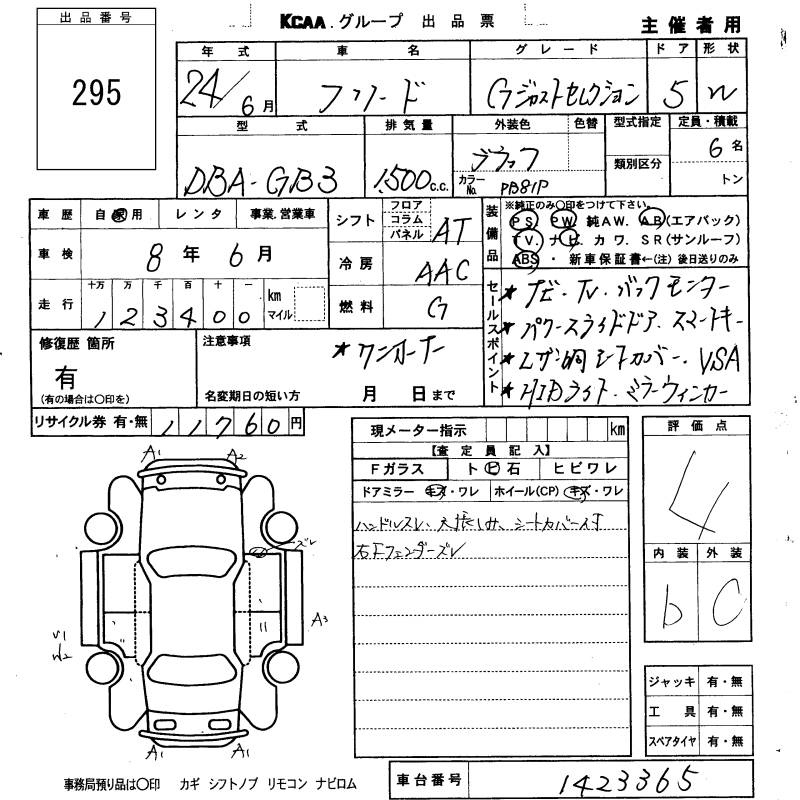 出品番号
295
KCAA.グループ 出品票
主催者用
年式 車名 グレード ドア 形状
24/6月 フリード Gジャストセレクション 5 W
型式 排気量 外装色 色替 型式指定 定員・積載
類別区分
DBA-GB3 1500c.c. ブラック カラーNo. PB81P 6名
トン
車歴 自家用 レンタ 事業.営業車
車検 8年6月
走行 十万 万 千 百 十 一 km マイル
1 2 3 4 0 0
シフト フロア コラム パネル AT
冷房 AAC
燃料 G
装備品 ※純正のみ○印をつけて下さい。
PS PW 純AW. AB(エアバック)
TV. ナビ. カワ. SR(サンルーフ)
ABS ・ 新車保証書←(注) 後日送りのみ
セールスポイント
★ナビ.TV.バックモニター
★パワースライドドア.スマートキー
★レザー調シートカバー.VSA
★HIDライト.ミラーウィンカー
修復歴 箇所
有
(有の場合は○印を)
注意事項
★ワンオーナー
名変期日の短い方 月 日まで
リサイクル券 有・無 11760円
現メーター指示 km
【査定員記入】
Fガラス ト ヒ 石 ヒビワレ
ドアミラー キズ・ワレ ホイール(CP) キズ・ワレ
ハンドルスレ、天張しみ、シートカバー付
右Fフェンダーズレ
評価点
4
内装 外装
b C
ジャッキ 有・無
工具 有・無
スペアタイヤ 有・無
A1 A2
ズレ
A3
V1
W2
A1 A1
事務局預り品は○印 カギ シフトノブ リモコン ナビロム
車台番号 1423365